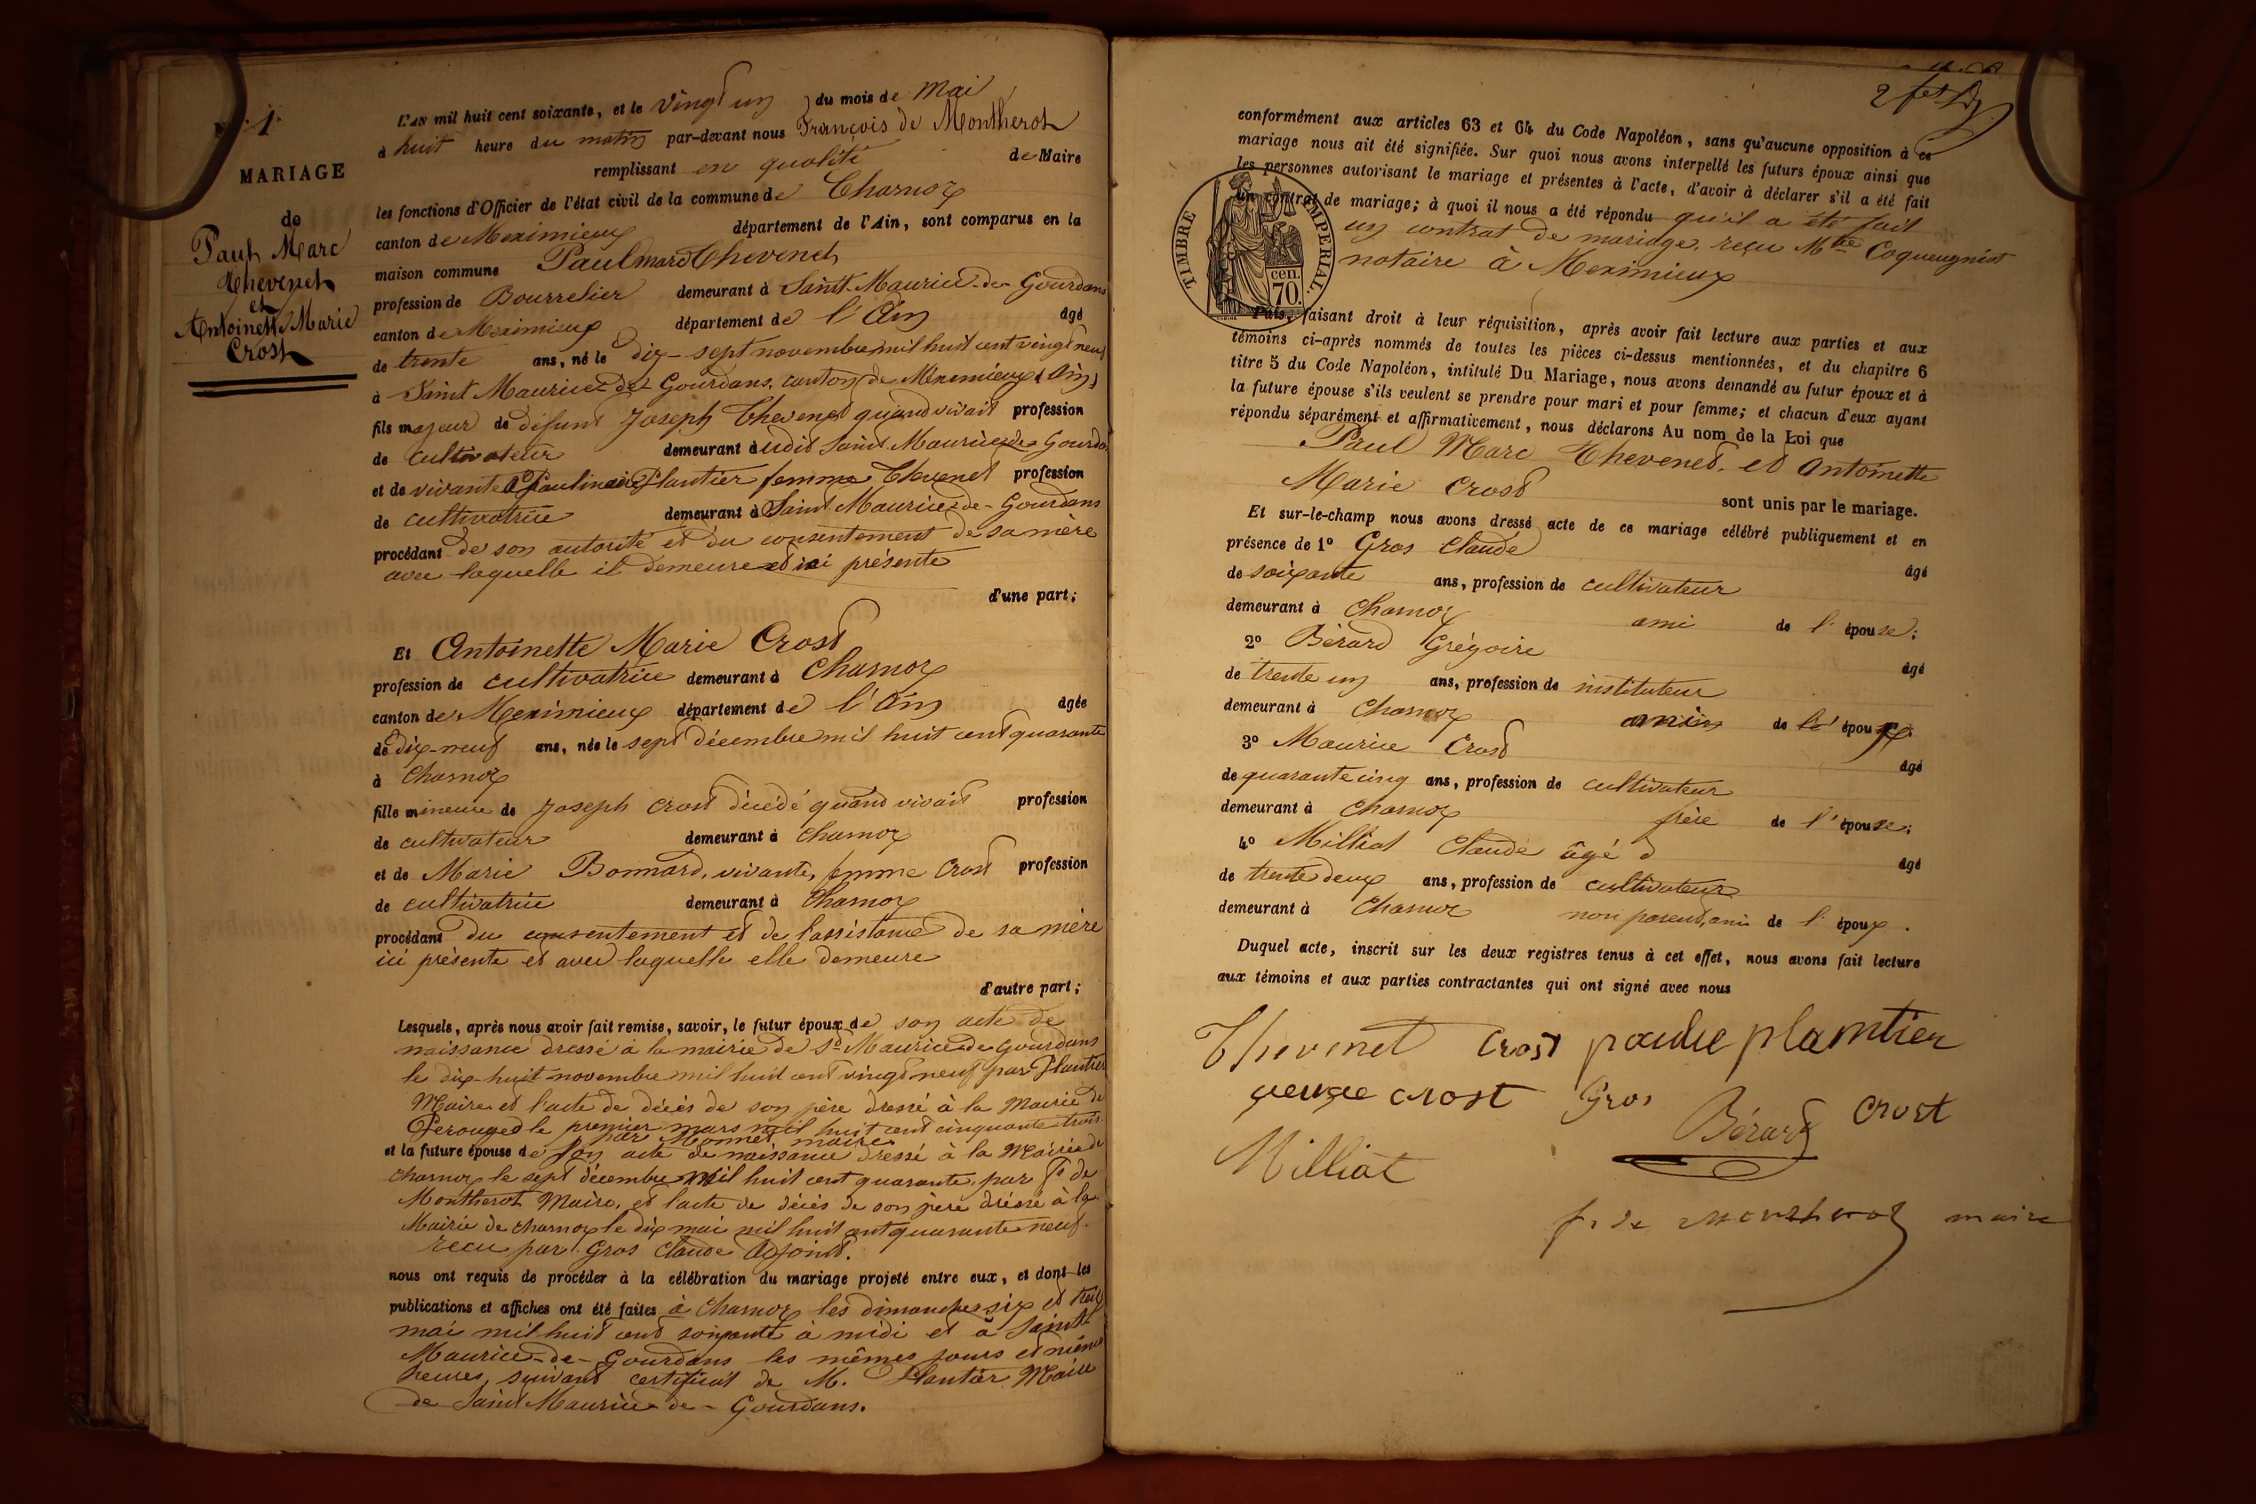 N° 1.
MARIAGE
de
Paul Marc
Thevenet
et
Antoinette Marie
Crost
L'AN mil huit cent soixante, et le vingt un du mois de Mai
à huit heure du matin par-devant nous François de Montherot
remplissant en qualité de Maire
les fonctions d'Officier de l'état civil de la commune de Charnoz
canton de Meximieux département de l'Ain, sont comparus en la
maison commune Paul marc Thevenet
profession de Bourrelier demeurant à Saint-Maurice-de-Gourdans
canton de Meximieux département de l'Ain âgé
de trente ans, né le dix-sept novembre mil huit cent vingt neuf
à Saint Maurice-de-Gourdans, canton de Meximieux (Ain)
fils majeur de défunt Joseph Thevenet quand vivait profession
de cultivateur demeurant audit Saint Maurice-de-Gourdans
et de vivante Pauline Plantier femme Thevenet profession
de cultivatrice demeurant à Saint Maurice-de-Gourdans
procédant de son autorité et du consentement de sa mère
avec laquelle il demeure et ici présente
d'une part;
Et Antoinette Marie Crost
profession de cultivatrice demeurant à Charnoz
canton de Meximieux département de l'Ain âgée
de dix-neuf ans, née le sept décembre mil huit cent quarante
à Charnoz
fille mineure de Joseph Crost décédé quand vivait profession
de cultivateur demeurant à Charnoz
et de Marie Bonnard, vivante, femme Crost profession
de cultivatrice demeurant à Charnoz
procédant du consentement et de l'assistance de sa mère
ici présente et avec laquelle elle demeure
d'autre part;
Lesquels, après nous avoir fait remise, savoir, le futur époux de son acte de
naissance dressé à la mairie de St Maurice-de-Gourdans
le dix-huit novembre mil huit cent vingt neuf par Plantier
Maire et l'acte de décès de son père dressé à la Mairie de
Perouges le premier mars mil huit cent cinquante trois
par Monnet, maire
et la future épouse de son acte de naissance dressé à la Mairie de
Charnoz le sept décembre mil huit cent quarante, par Fs de
Montherot Maire, et l'acte de décès de son père dressé à la
Mairie de Charnoz le dix mai mil huit cent quarante neuf
reçu par Gros Claude Adjoint.
nous ont requis de procéder à la célébration du mariage projeté entre eux, et dont les
publications et affiches ont été faites à Charnoz les dimanches six et treize
mai mil huit cent soixante à midi et à Saint-
Maurice-de-Gourdans les mêmes jours et même
heures, suivant certificat de M. Plantier Maire
de Saint Maurice-de-Gourdans.
conformément aux articles 63 et 64 du Code Napoléon, sans qu'aucune opposition à ce
mariage nous ait été signifiée. Sur quoi nous avons interpellé les futurs époux ainsi que
les personnes autorisant le mariage et présentes à l'acte, d'avoir à déclarer s'il a été fait
un contrat de mariage; à quoi il nous a été répondu qu'il a été fait
un contrat de mariage, reçu Mtre Coqueugniot
notaire à Meximieux
TIMBRE IMPERIAL.
cen.
70.
Puis, faisant droit à leur réquisition, après avoir fait lecture aux parties et aux
témoins ci-après nommés de toutes les pièces ci-dessus mentionnées, et du chapitre 6
titre 5 du Code Napoléon, intitulé Du Mariage, nous avons demandé au futur époux et à
la future épouse s'ils veulent se prendre pour mari et pour femme; et chacun d'eux ayant
répondu séparément et affirmativement, nous déclarons Au nom de la Loi que
Paul Marc Thevenet, et Antoinette
Marie Crost sont unis par le mariage.
Et sur-le-champ nous avons dressé acte de ce mariage célébré publiquement et en
présence de 1° Gros Claude âgé
de soixante ans, profession de cultivateur
demeurant à Charnoz ami de l'épouse;
2° Bérard Grégoire âgé
de trente un ans, profession de instituteur
demeurant à Charnoz ami de l' époux
3° Maurice Crost âgé
de quarante cinq ans, profession de cultivateur
demeurant à Charnoz frère de l'épouse;
4° Milliat Claude âgé d âgé
de trente deux ans, profession de cultivateur
demeurant à Charnoz non parent, ami de l'époux.
Duquel acte, inscrit sur les deux registres tenus à cet effet, nous avons fait lecture
aux témoins et aux parties contractantes qui ont signé avec nous
Thevenet Crost plantier
Crost Gros Bérard Crost
Milliat
fs de Montherot maire